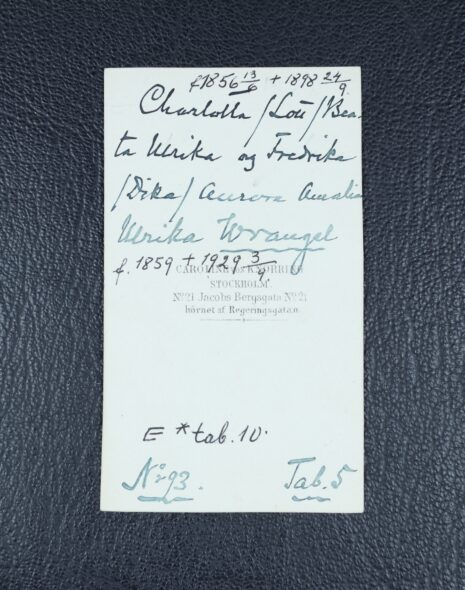 f1856 13/6 + 1898 24/9
Charlotta /Lott/ Bea-
ta Ulrika og Fredrika
/Dika/ Aurora Amalia
Ulrika Wrangel
f. 1859 + 1929 3/9.
CAROLINE von KNORRING
STOCKHOLM.
No 21 Jacobs Bergsgata No 21
hörnet af Regeringsgatan
E *tab. 10.
No 93.
Tab. 5